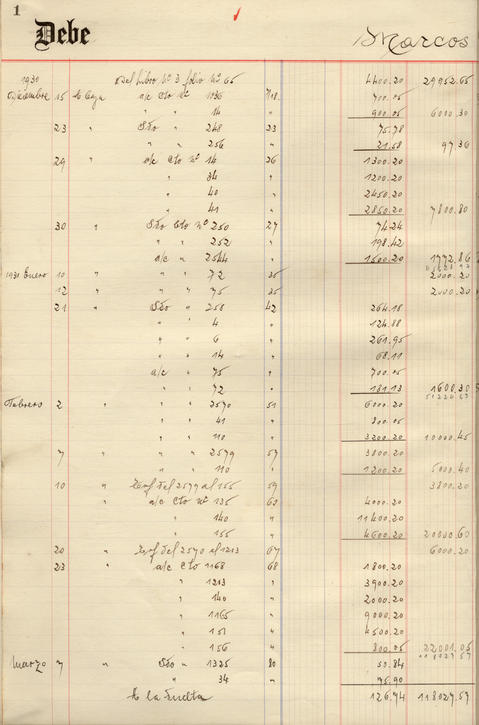 1
Debe Marcos
1930 Del libro Nº 3 folio Nº 65 4400.20 29952.65
Diciembre 15 a Caja a/c Cto Nº 1036 718 700.05
" " 14 " 900.05 6000.30
23 " Sdo " 248 23 75.78
" " 256 " 21.58 97.36
29 " a/c Cto Nº 14 26 1300.20
" 34 " 1200.20
" 40 " 2450.20
" 41 " 2850.20 7800.80
30 " Sdo Cto Nº 250 27 74.24
" " 252 " 198.42
a/c " 2544 " 1500.20 1772.86
1931 Enero 10 " " " 72 35 2000.20
12 " " " 75 35 2000.20
21 " Sdo " 258 42 264.18
" " 4 " 124.88
" " 6 " 261.95
" " 14 " 68.11
a/c " 75 " 700.05
" 72 " 181.13 1600.30
Febrero 2 " " " 2570 51 6000.20
" " 41 " 800.05
" " 110 " 3200.20 10000.45
7 " " " 2579 57 3800.20
" " 110 " 1200.20 5000.40
10 " Tranf del 2579 al 155 59 3800.20
" a/c Cto Nº 135 60 4000.20
" 140 " 11400.20
" 155 " 4600.20 20000.60
20 " Tranf del 2570 al 1213 67 6000.20
23 " a/c Cto 1168 68 1800.20
" 1213 " 3900.20
" 140 " 2000.20
" 1165 " 9000.20
" 151 " 4500.20
" 156 " 800.05 22001.05
Marzo 7 " Sdo " 1325 80 50.84
" " 34 " 75.90
A la Vuelta 126.74 118027.57